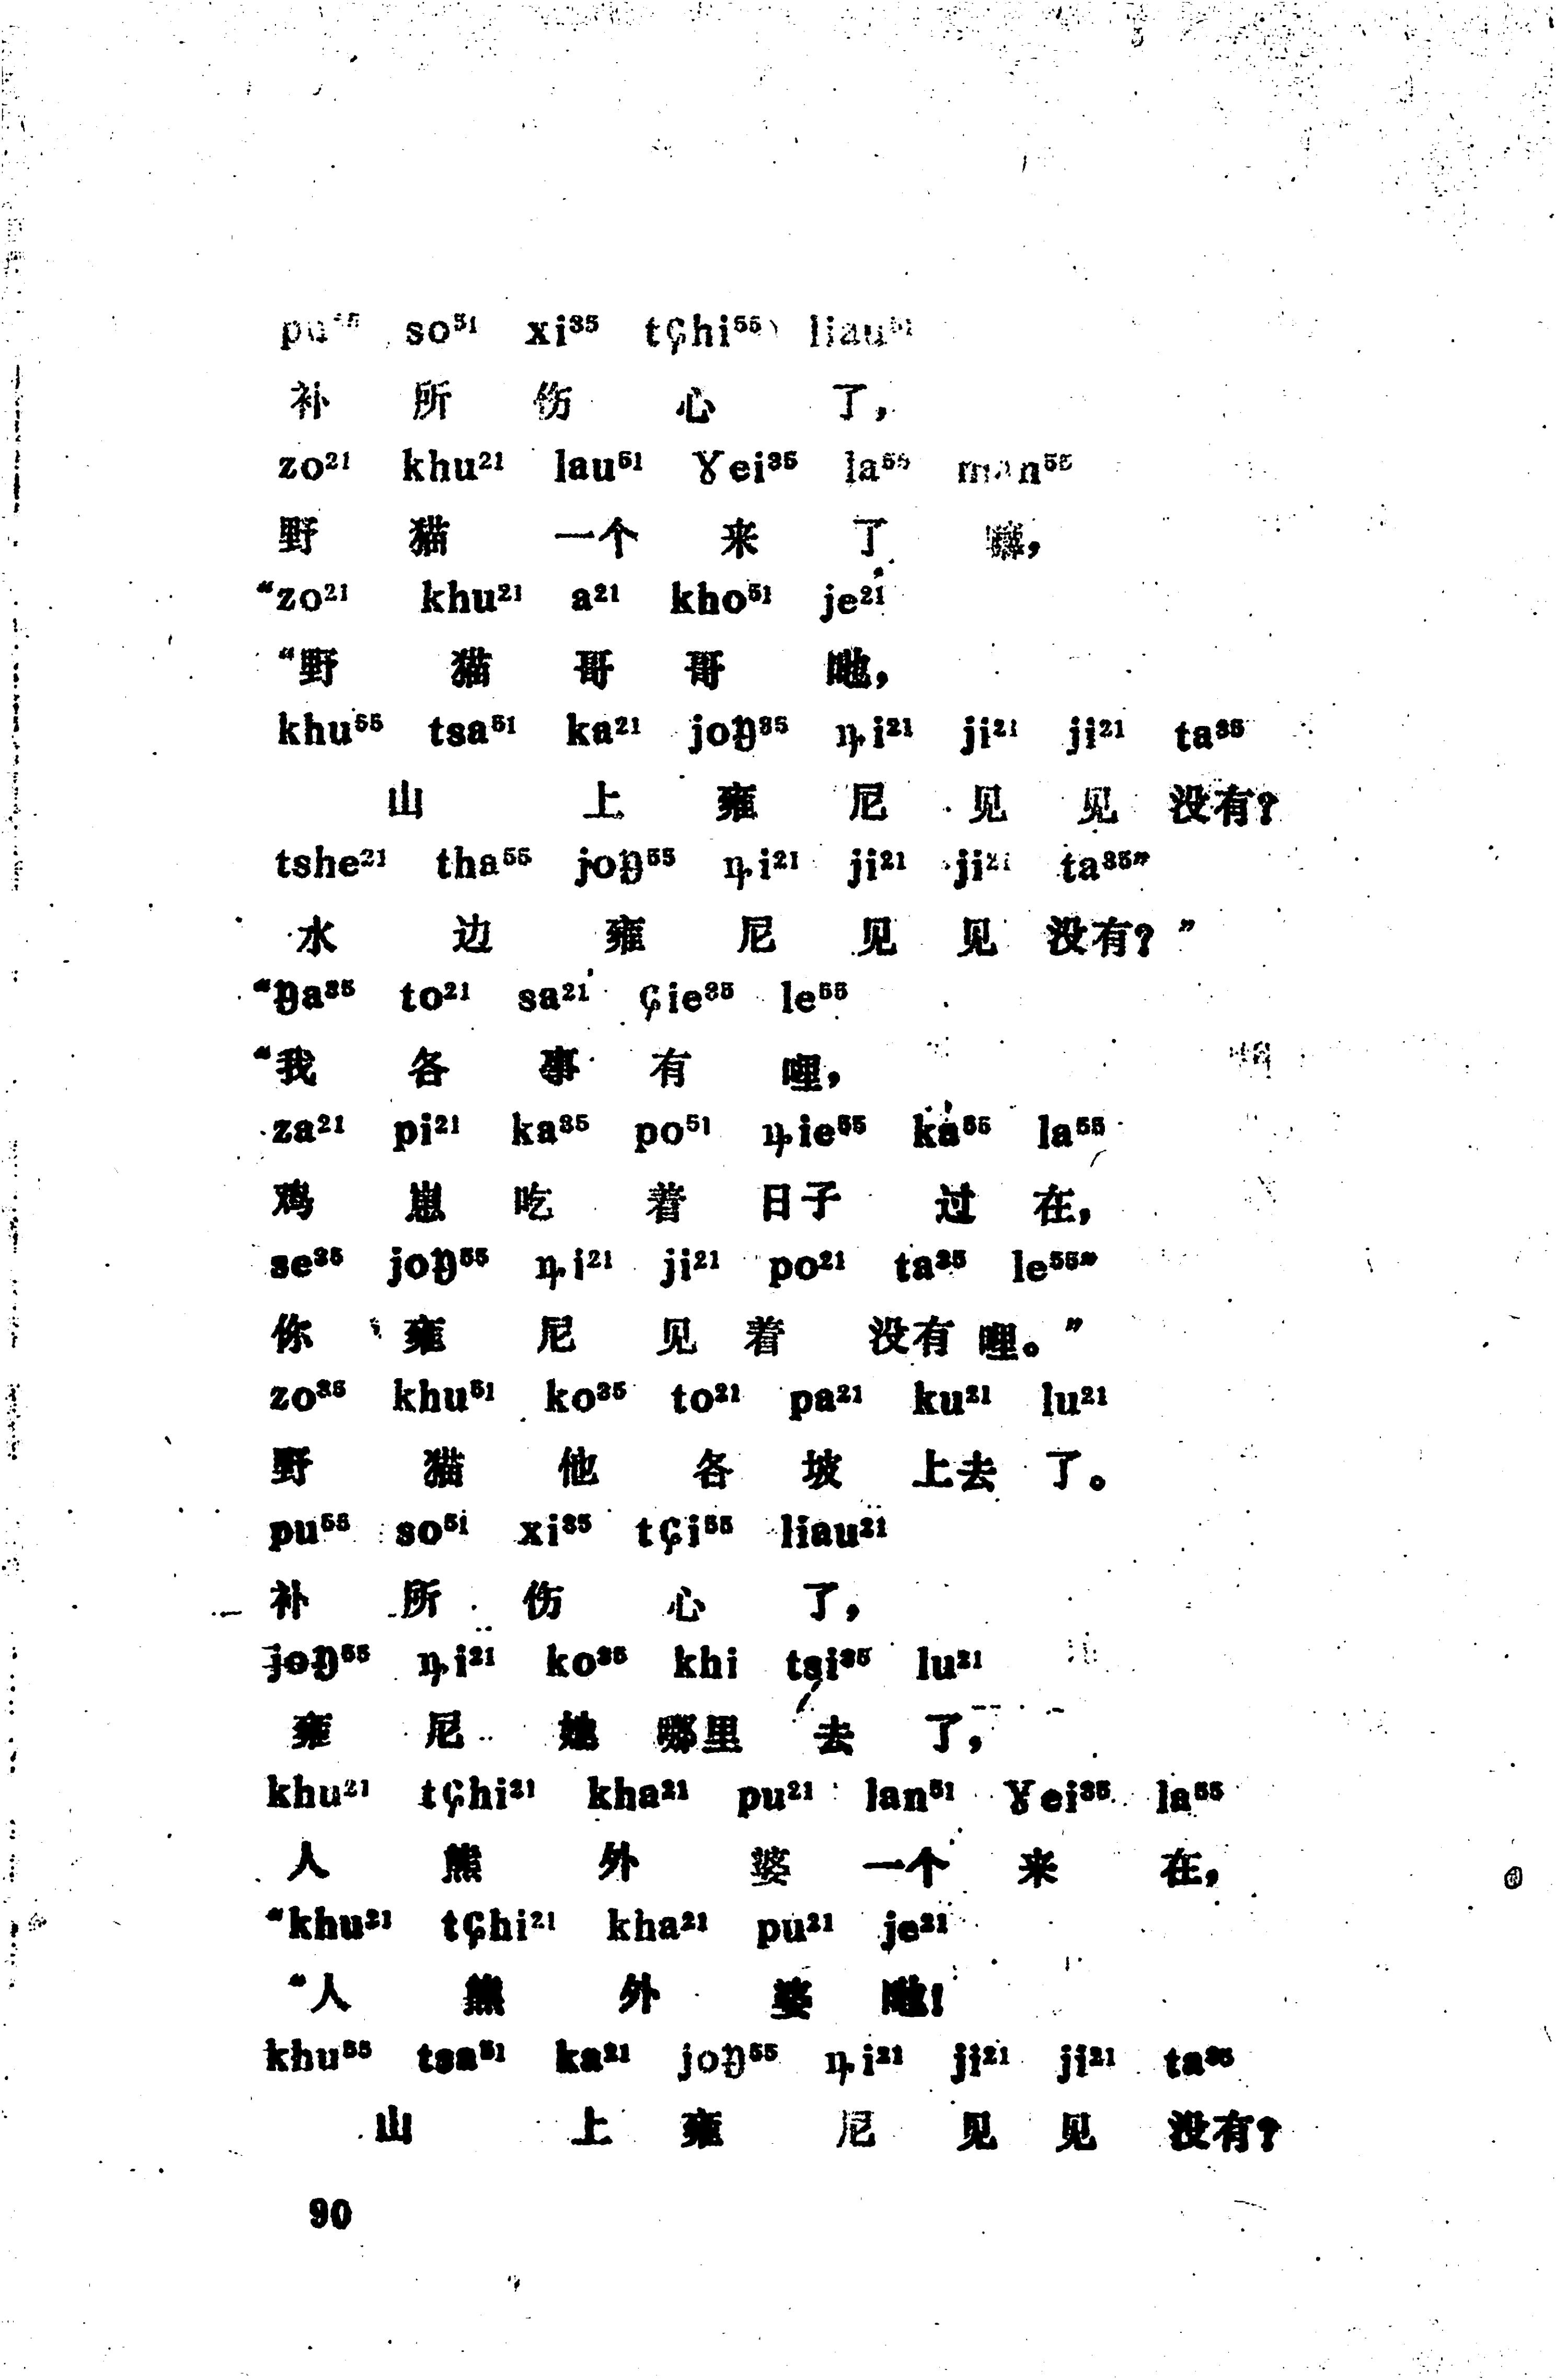 pu⁵⁵ so⁵¹ xi³⁵ tɕhi⁵⁵ liau⁵¹
补 所 伤 心 了，
zo²¹ khu²¹ lau⁵¹ ɣei³⁵ la⁵⁵ man⁵⁵
野 猫 一个 来 了 嘛，
“zo²¹ khu²¹ a²¹ kho⁵¹ je²¹
“野 猫 哥 哥 吔，
khu⁵⁵ tsa⁵¹ ka²¹ joŋ³⁵ ȵi²¹ ji²¹ ji²¹ ta³⁵
山 上 雍 尼 见 见 没有？
tshe²¹ tha⁵⁵ joŋ⁵⁵ ȵi²¹ ji²¹ ji²¹ ta³⁵”
水 边 雍 尼 见 见 没有？”
“ŋa³⁵ to²¹ sa²¹ ɕie³⁵ le⁵⁵
“我 各 事 有 哩，
za²¹ pi²¹ ka³⁵ po⁵¹ ȵie⁵⁵ ka⁵⁵ la⁵⁵
鸡 崽 吃 着 日子 过 在，
se³⁵ joŋ⁵⁵ ȵi²¹ ji²¹ po²¹ ta³⁵ le⁵⁵”
你 雍 尼 见 着 没有 哩。”
zo³⁵ khu⁵¹ ko³⁵ to²¹ pa²¹ ku²¹ lu²¹
野 猫 他 各 坡 上去 了。
pu⁵⁵ so⁵¹ xi³⁵ tɕi⁵⁵ liau²¹
补 所 伤 心 了，
joŋ⁵⁵ ȵi²¹ ko³⁵ khi tsi³⁵ lu²¹
雍 尼 她 哪里 去 了，
khu²¹ tɕhi²¹ kha²¹ pu²¹ lan⁵¹ ɣei³⁵ la⁵⁵
人 熊 外 婆 一个 来 在，
“khu²¹ tɕhi²¹ kha²¹ pu²¹ je²¹
“人 熊 外 婆 吔！
khu⁵⁵ tsa⁵¹ ka²¹ joŋ⁵⁵ ȵi²¹ ji²¹ ji²¹ ta³⁵
山 上 雍 尼 见 见 没有？
90